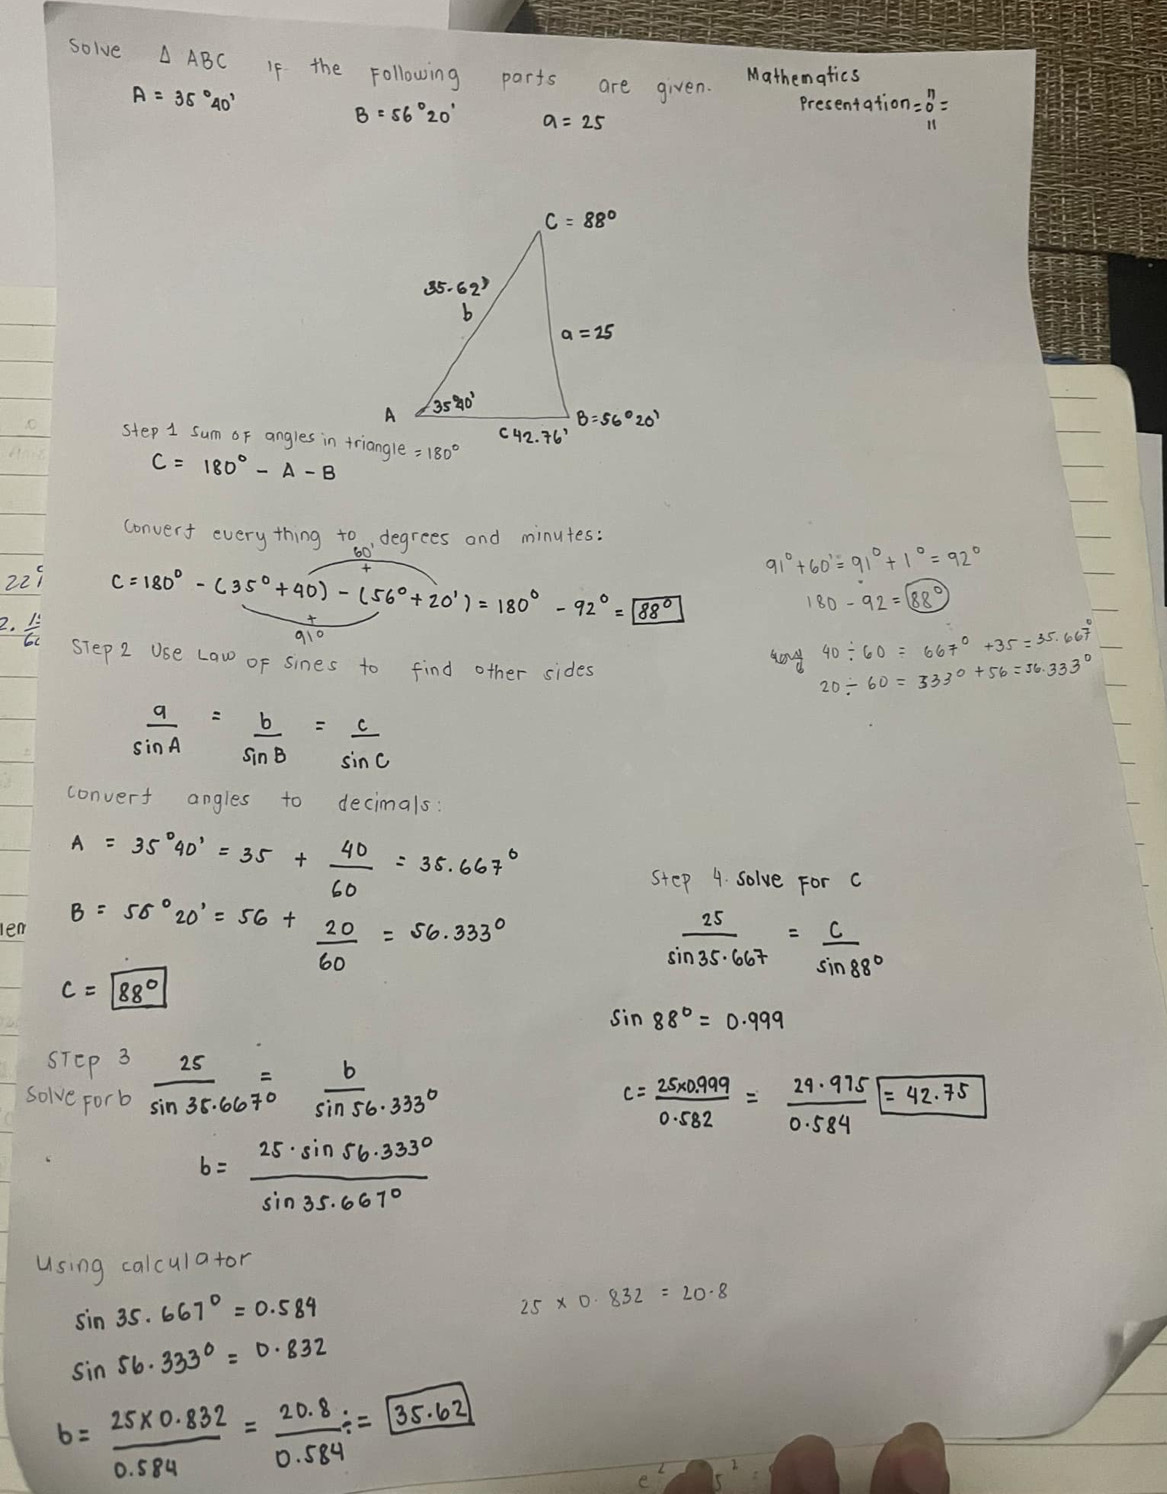 Solve Δ ABC if the following parts are given.
A = 35°40'
B = 56°20'
a = 25
Mathematics
Presentation
C = 88°
35.62'
b
a = 25
A
35°40'
B = 56°20'
c 42.76'
Step 1 Sum of angles in triangle = 180°
C = 180° - A - B
Convert everything to degrees and minutes:
60'
+
C = 180° - (35° + 40) - (56° + 20') = 180° - 92° = 88°
+
91°
91° + 60' = 91° + 1° = 92°
180 - 92 = 88°
40 ÷ 60 = 667° + 35 = 35.667°
20 ÷ 60 = 333° + 56 = 56.333°
Step 2 Use Law of sines to find other sides
a/sin A = b/sin B = c/sin C
Convert angles to decimals:
A = 35°40' = 35 + 40/60 = 35.667°
B = 56°20' = 56 + 20/60 = 56.333°
C = 88°
Step 3
Solve for b
25/sin 35.667° = b/sin 56.333°
b = 25 · sin 56.333°/sin 35.667°
Using calculator
sin 35.667° = 0.584
sin 56.333° = 0.832
25 x 0.832 = 20.8
b = 25 x 0.832/0.584 = 20.8/0.584 ÷ = 35.62
Step 4. Solve for c
25/sin 35.667 = c/sin 88°
sin 88° = 0.999
c = 25x0.999/0.582 = 24.975/0.584 = 42.75